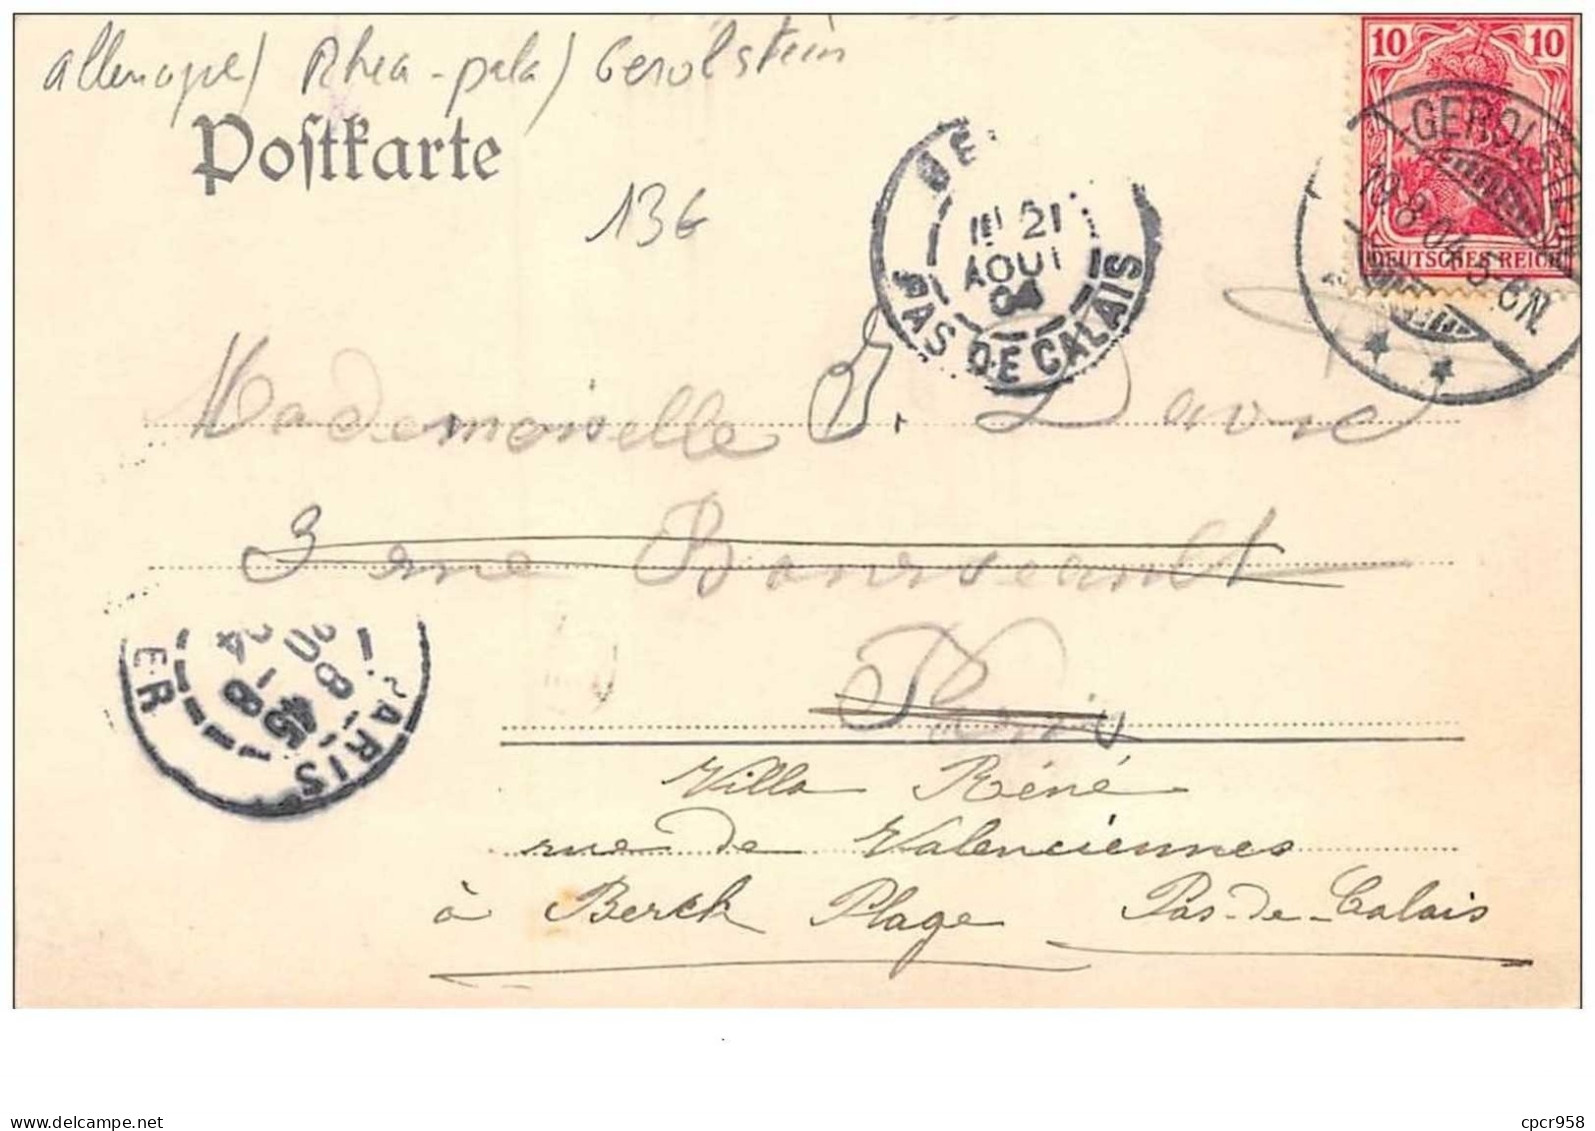 Allemagne / Rhea-pala / Gerolstein
Postkarte
13€
10 10
DEUTSCHES REICH
GEROLSTEIN
19.8.04.5-6N.
BE
21
AOUT
04
PAS DE CALAIS
Mademoiselle
3 rue Boursault
Paris
PARIS
Villa Réné
rue de Valenciennes
à Berck Plage Pas-de-Calais
delcampe.net
cpcr958